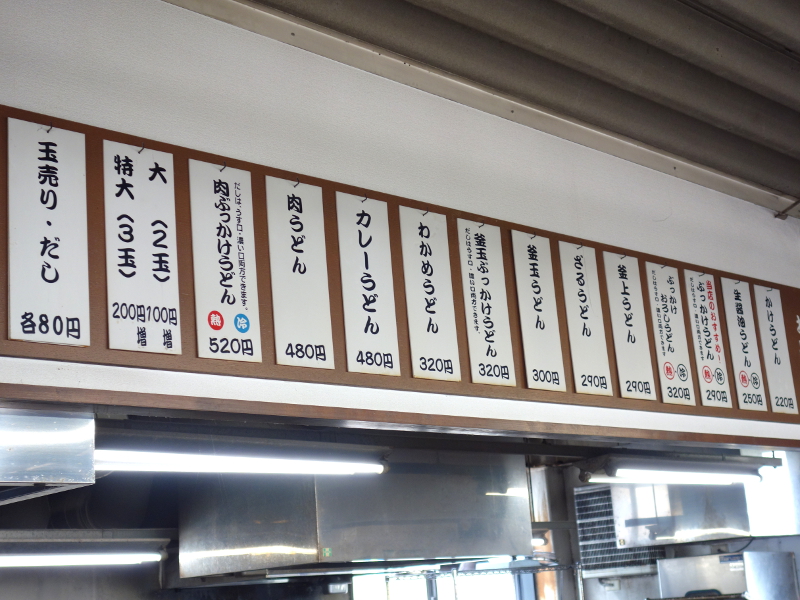 かけうどん
220円
生醤油うどん
熱
冷
250円
当店のおすすめ!
ぶっかけうどん
だしは、うす口・濃い口両方できます。
熱・冷
290円
ぶっかけ
おろしうどん
だしは、うす口・濃い口両方できます。
熱・冷
320円
釜上うどん
290円
ざるうどん
290円
釜玉うどん
300円
釜玉ぶっかけうどん
だしはうす口・濃い口両方できます。
320円
わかめうどん
320円
カレーうどん
480円
肉うどん
480円
だしは、うす口・濃い口両方できます。
肉ぶっかけうどん
熱
冷
520円
大(2玉)
100円
増
特大(3玉)
200円
増
玉売り・だし
各80円